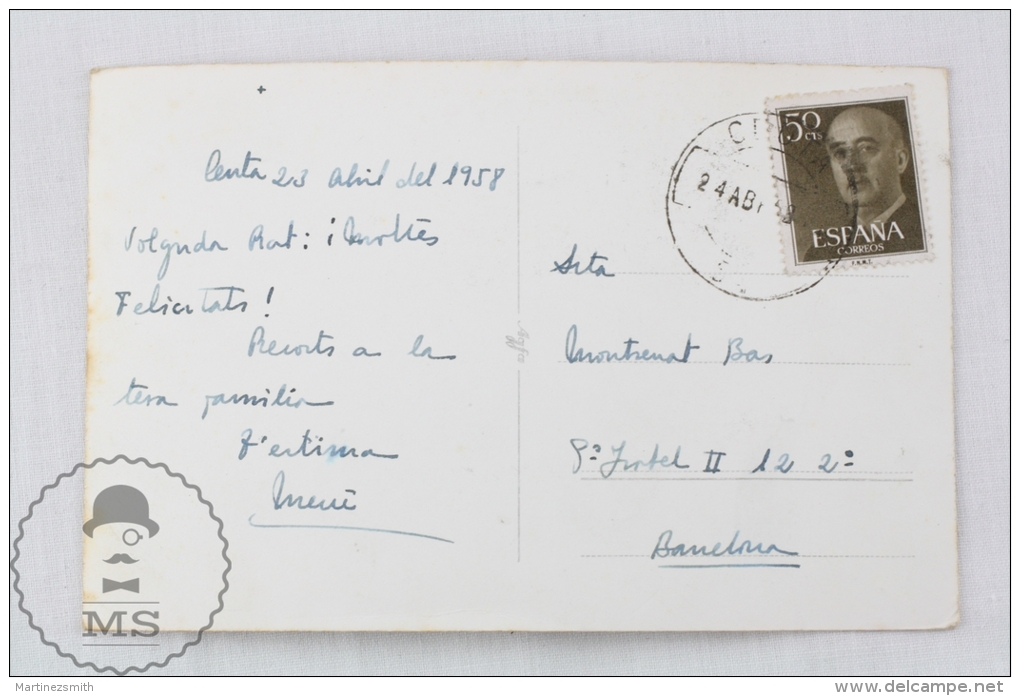 Ceuta 23 Abril del 1958
Volguda Rat: ¡ Moltes
Felicitats !
Records a la
teva familia
T'estima
50 CTS
24 ABR 58
ESPAÑA
CORREOS
F.N.M.T.
Srta
Montserrat Bas
Pº Isabel II 12 2º
Barcelona
MS
Martinezsmith
http://www.delcampe.net